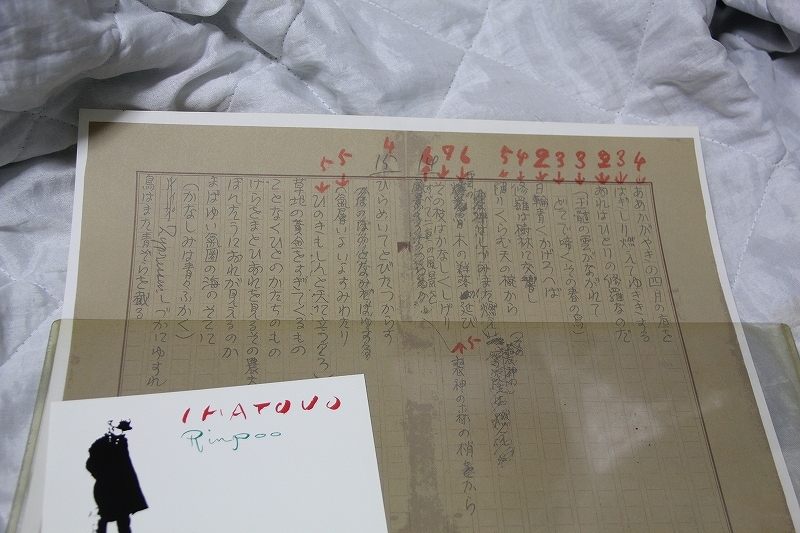 4 3 2 3 3 2 4 5 6 9 6
4 5 5
15
ああかがやきの四月の底を
はぎしり燃えてゆききする
おれはひとりの修羅なのだ
(玉髄の雲がながれて
どこで啼くその春の鳥)
日輪青くかげろへば
修羅は樹林に交響し
陥りくらむ天の椀から
木の群落延び
その枝はかなしくしげり
すべて二重の風景を
5
喪神の森の梢から
ひらめいてとびたつからす
(気層いよいよすみわたり
ひのきもしんと天に立つころ)
草地の黄金をすぎてくるもの
ことなくひとのかたちのもの
けらをまとひおれを見るその農夫
ほんたうにおれが見えるのか
まばゆい気圏の海のそこに
(かなしみは青々ふかく)
Zypressen しづかにゆすれ
鳥はまた青ぞらを截る
IHATOVO
Rinpoo